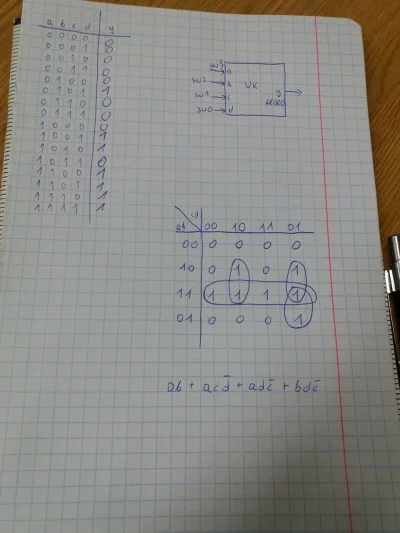 a b c d y
0 0 0 0 0
0 0 0 1 0
0 0 1 0 0
0 0 1 1 0
0 1 0 0 0
0 1 0 1 1
0 1 1 0 0
0 1 1 1 0
1 0 0 0 0
1 0 0 1 1
1 0 1 0 1
1 0 1 1 0
1 1 0 0 1
1 1 0 1 1
1 1 1 0 1
1 1 1 1 1
SW3 a
SW2 b
UK
SW1 c y
LEDR0
SW0 d
cd
ab 00 10 11 01
00 0 0 0 0
10 0 1 0 1
11 1 1 1 1
01 0 0 0 1
ab + acd̄ + adc̄ + bdc̄